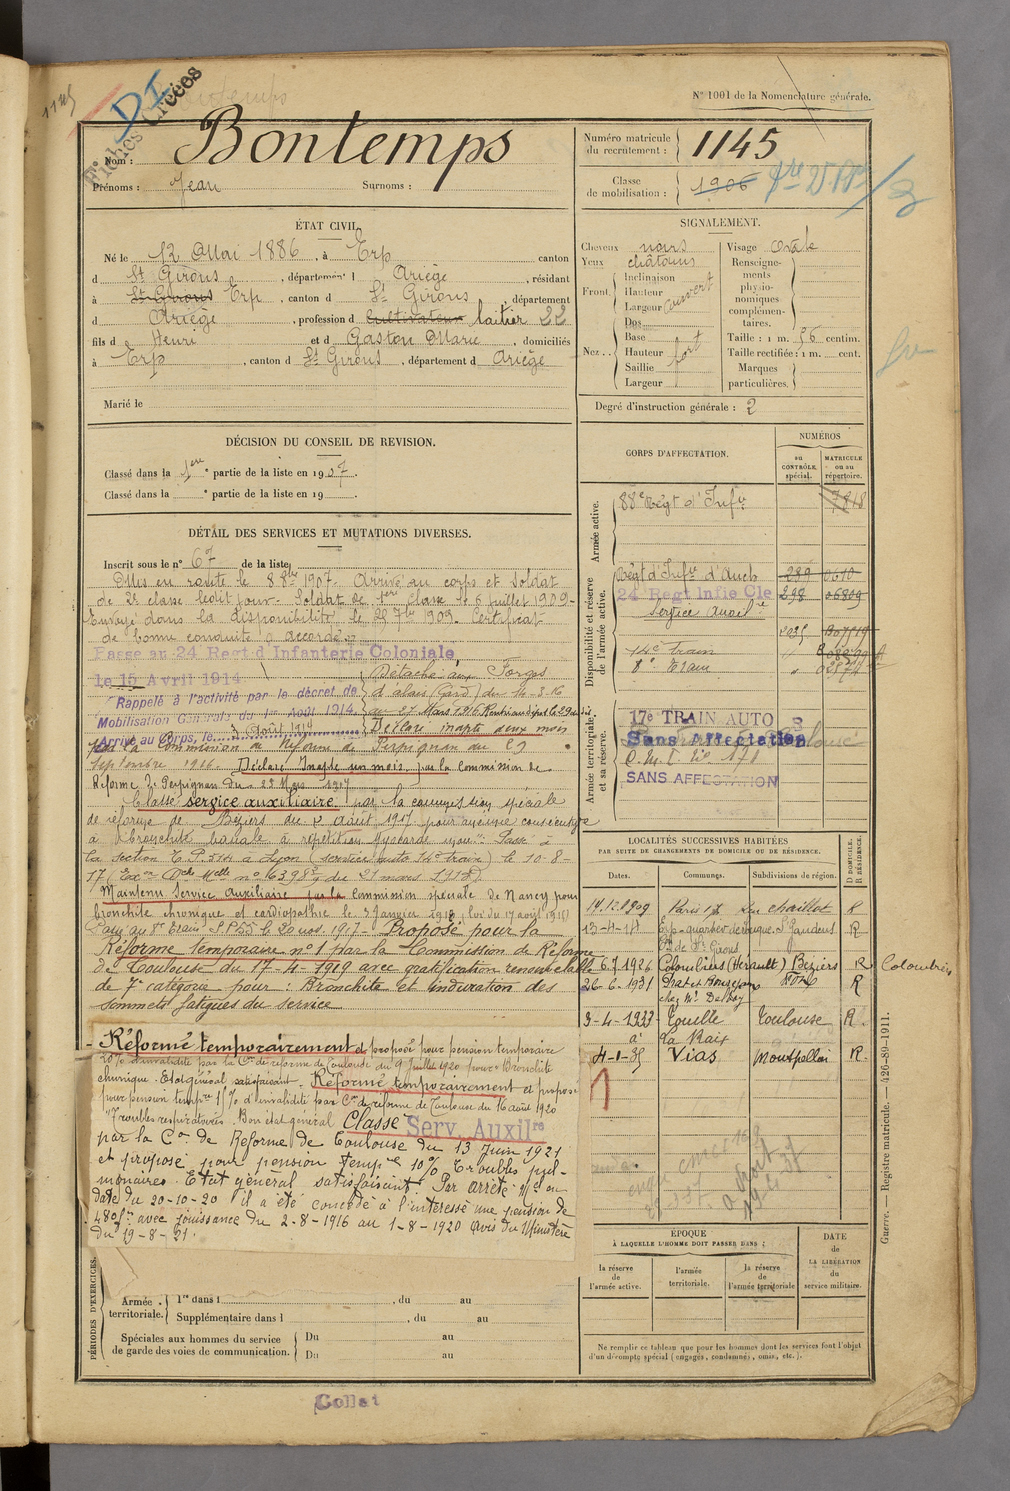 1145
DI
Fiches Créées
N° 1001 de la Nomenclature générale.
Nom : Bontemps
Prénoms : Jean Surnoms :
Numéro matricule du recrutement : 1145
Classe de mobilisation : 1906
ÉTAT CIVIL.
Né le 12 Mai 1886, à Erp canton
d St Girons, département d Ariège, résidant
à St Girons Erp, canton d St Girons, département
d Ariège, profession d cultivateur laitier 22
fils d Henri et d Gaston Marie, domiciliés
à Erp, canton d St Girons, département d Ariège
Marié le
SIGNALEMENT.
Cheveux noirs
Yeux châtains
Front
Inclinaison
Hauteur
Largeur
couvert
Nez
Dos
Base
Hauteur fort
Saillie
Largeur
Visage ovale
Renseignements physionomiques complémentaires.
Taille : 1 m. 56 centim.
Taille rectifiée : 1 m. cent.
Marques particulières.
Degré d'instruction générale : 2
DÉCISION DU CONSEIL DE REVISION.
Classé dans la 1ere partie de la liste en 1907.
Classé dans la e partie de la liste en 19 .
DÉTAIL DES SERVICES ET MUTATIONS DIVERSES.
Inscrit sous le n° 67 de la liste
Mis en route le 8 8bre 1907. Arrivé au corps et Soldat
de 2e classe ledit jour. Soldat de 1ère classe le 6 juillet 1909.
Envoyé dans la disponibilité le 25 7bre 1909. Certificat
de bonne conduite "accordé"
Passe au 24 Regt d'Infanterie Coloniale,
le 15 Avril 1914
Rappelé à l'activité par le décret de
Mobilisation Générale du 1er Août 1914.
Arrivé au Corps, le 3 août 1914
Détaché aux Forges
d'alais (Gard) du 4-3-16
au 27 Mars 1916 Rentré au dépôt le 29
Déclaré inapte deux mois
par la Commission de Réforme de Perpignan du 29
septembre 1916. Déclaré Inapte un mois par la Commission de
Réforme de Perpignan du 22 Mars 1917
Classé service auxiliaire par la commission spéciale
de réforme de Béziers du août 1917 pour
à bronchite banale à répétition Passé à
la section T.P. 514 à Lyon (service auto 14e train) le 10-8-
17 (Exon Dle Melle n° 6398 du 21 mars 1918)
Maintenu Service Auxiliaire par la Commission spéciale de Nancy pour
bronchite chronique et cardiopathie le 2 Janvier 1918 (loi du 17 août 1915)
Passé au 8e Train S.P 55 le 20 nov. 1917 - Proposé pour la
Réforme temporaire n° 1 par la Commission de Réforme
de Toulouse du 17-4-1919 avec gratification renouvelable
de 7e catégorie pour : Bronchite et induration des
sommets fatigues du service
- Réformé temporairement et proposé pour pension temporaire
20% d'invalidité par la Con de réforme de Toulouse du 9 Juillet 1920 pour : Bronchite
chronique. Etat général satisfaisant. Réformé temporairement et proposé
pour pension tempre 15% d'invalidité par Con de réforme de Toulouse du 16 août 1920
"Troubles respiratoires. Bon état général Classé Serv. Auxilre
par la Con de Réforme de Toulouse du 13 Juin 1921
et proposé pour pension tempre 10% Troubles pul-
monaires. Etat général satisfaisant. Par arrêté Mel en
date du 20-10-20 il a été concédé à l'intéressé une pension de
480f avec jouissance du 2-8-1916 au 1-8-1920 avis du Ministère
du 19-8-21.
CORPS D'AFFECTATION.
NUMÉROS
au CONTRÔLE spécial.
MATRICULE ou au répertoire.
Armée active.
88e Régt d'Infie 7818
Disponibilité et réserve de l'armée active.
Régt d'Infie d'Auch 289 0610
24 Regt Infie Cle 298 06809
Service auxile
14e Train
8e Train
Armée territoriale et sa réserve.
17e TRAIN AUTO
Sans Affectation
SANS AFFECTATION
LOCALITÉS SUCCESSIVES HABITÉES
PAR SUITE DE CHANGEMENTS DE DOMICILE OU DE RÉSIDENCE.
Dates. Communes. Subdivisions de région. D DOMICILE. R RÉSIDENCE.
14.12.1909 Paris 17 rue Chaillot R
13-4-14 Erp St Gaudens R
Con de St Girons
6.7.1926 Colombiers (Hérault) Béziers R Colombiers
26-6-1931 Prat et Bonrepaux Foix R
3-4-1933 Touille Toulouse R.
4-1-35 Vias Montpellier R.
1
ÉPOQUE
À LAQUELLE L'HOMME DOIT PASSER DANS :
la réserve de l'armée active.
l'armée territoriale.
la réserve de l'armée territoriale
DATE de LA LIBÉRATION du service militaire.
Ne remplir ce tableau que pour les hommes dont les services font l'objet d'un décompte spécial (engagés, condamnés, omis, etc.).
PÉRIODES D'EXERCICES.
Armée territoriale.
1re dans l , du au
Supplémentaire dans l , du au
Spéciales aux hommes du service de garde des voies de communication.
Du au
Du au
Guerre. — Registre matricule. — 426-89-1911.
Collat